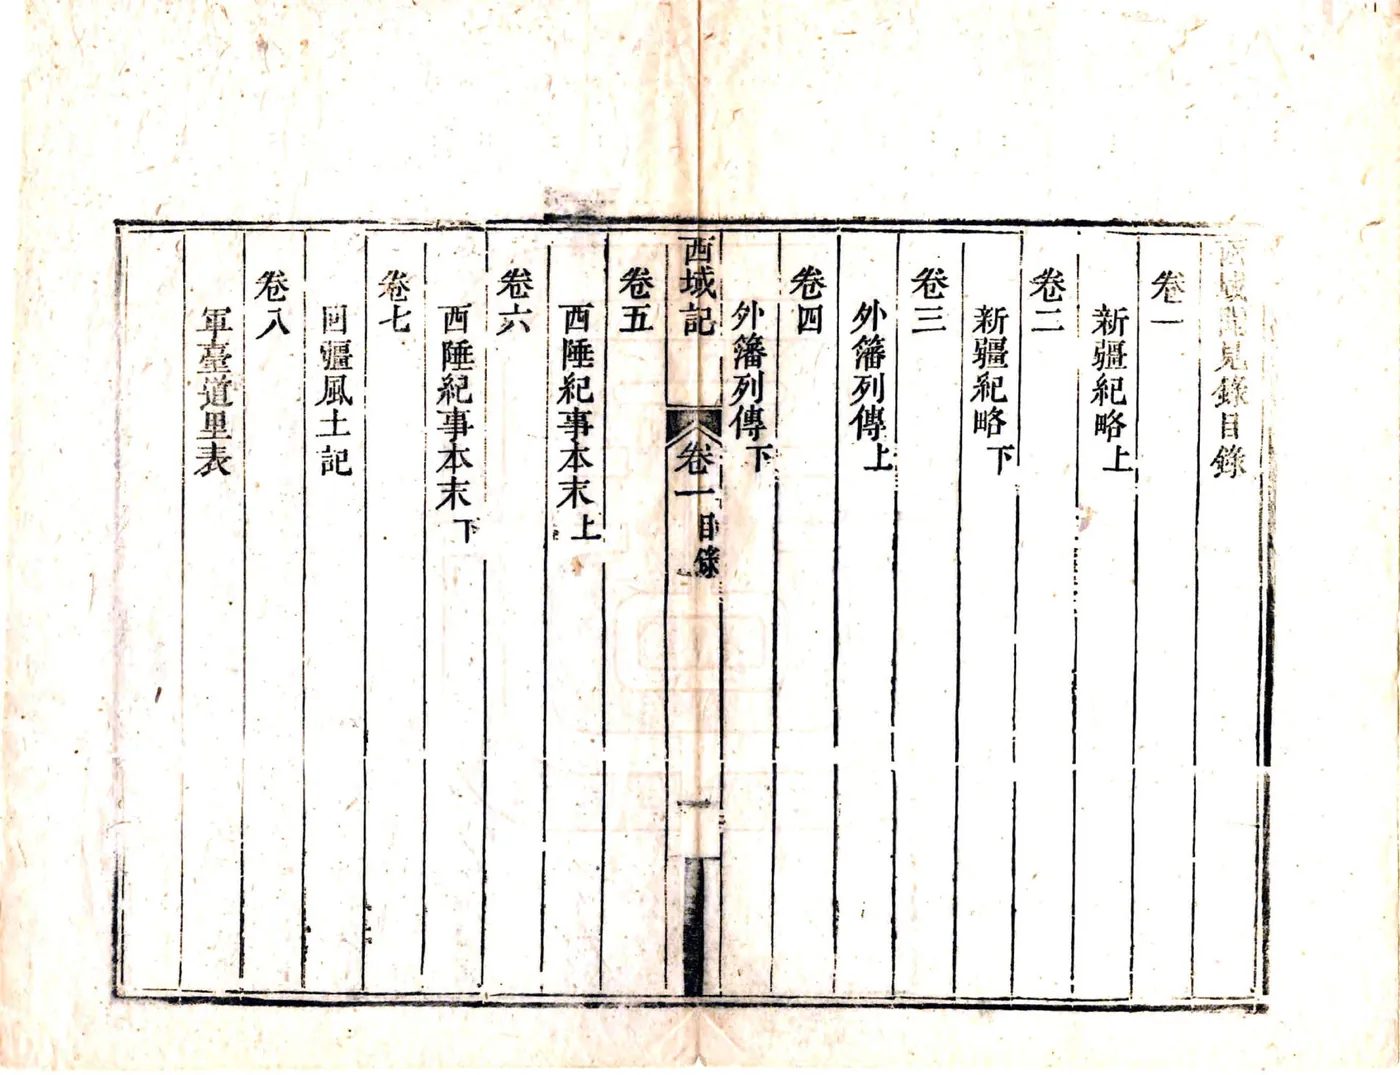 西域聞見錄目錄
卷一
新疆紀略上
卷二
新疆紀略下
卷三
外籓列傳上
卷四
外籓列傳下
西域記
卷一
目錄
一
卷五
西陲紀事本末上
卷六
西陲紀事本末下
卷七
回疆風土記
卷八
軍臺道里表